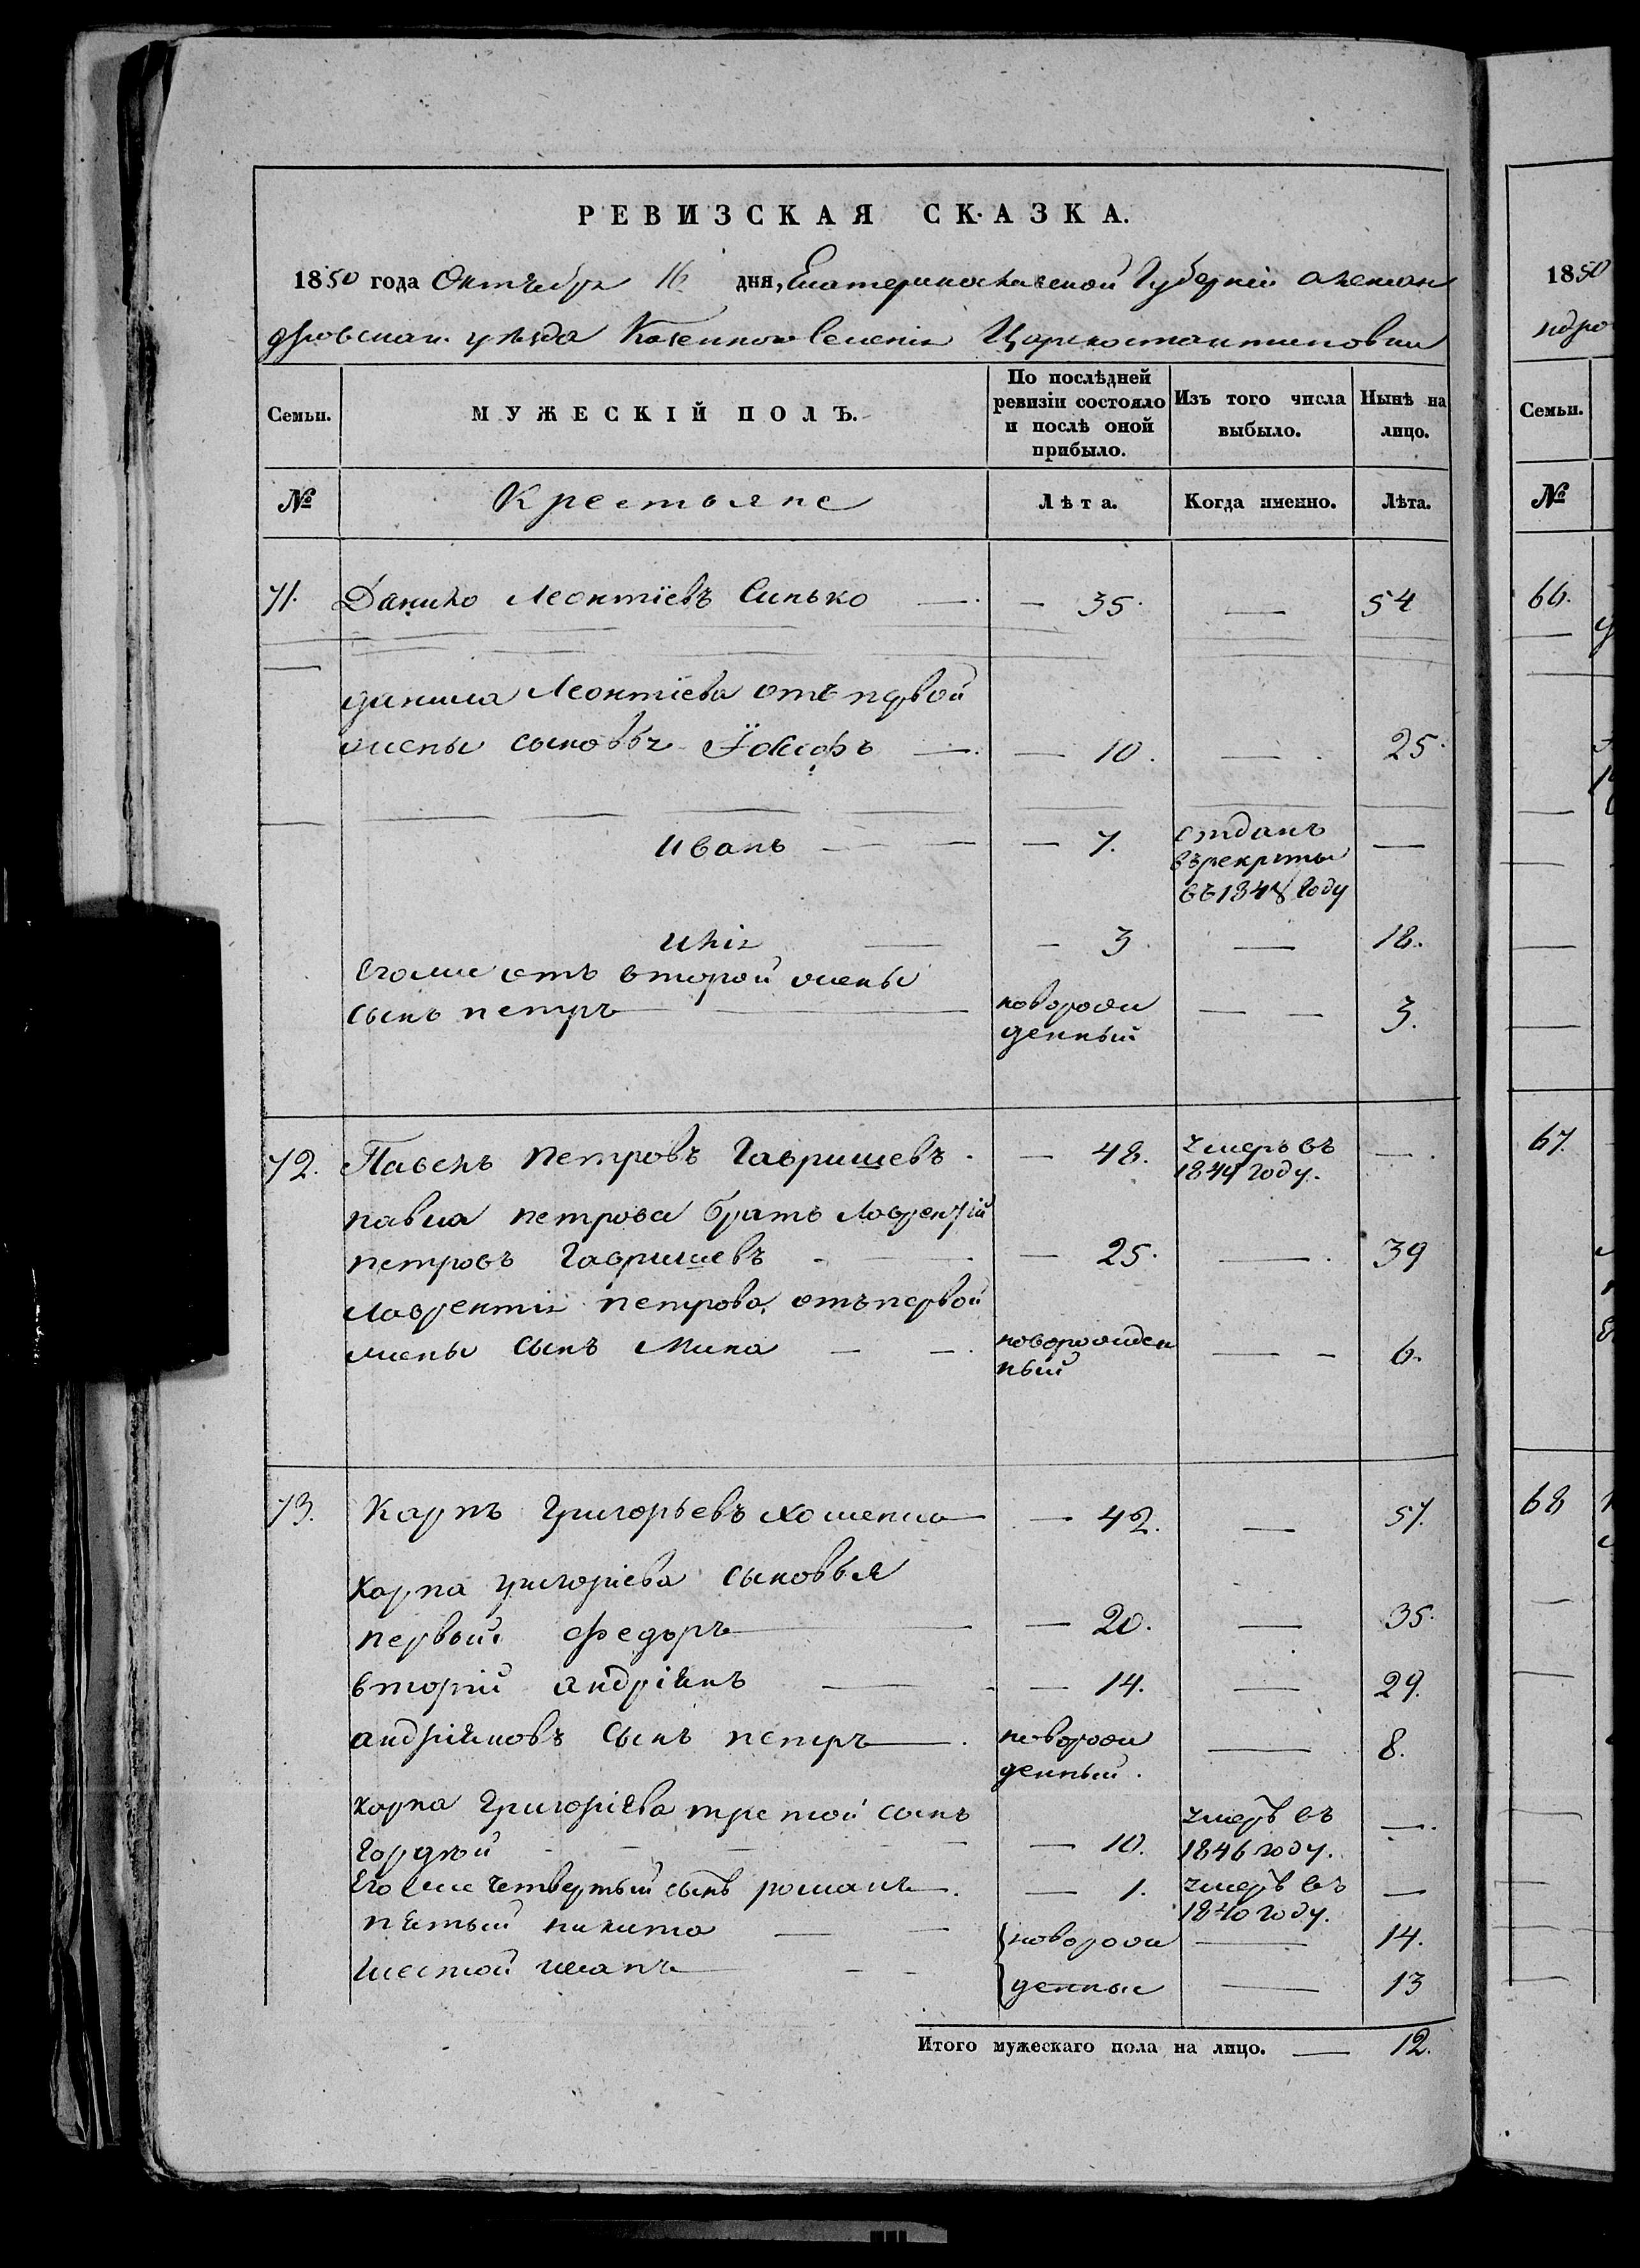 РЕВИЗСКАЯ СКАЗКА.
1850 года Октября 16 дня, Екатеринославской Губерніи Алексан
дровскаго уѣзда Казеннаго Селенія Царекостантиновки
Семьи. МУЖЕСКІЙ ПОЛЪ. По послѣдней ревизіи состояло и послѣ оной прибыло. Изъ того числа выбыло. Нынѣ на лицо.
№ Крестьяне Лѣта. Когда именно. Лѣта.
71. Данило Леонтіевъ Синько — 35. — 54
данила Леонтіева отъ первой
жены сыновья Іосифъ — 10. — 25.
Иванъ — 7. отданъ
въ рекруты
въ 184 году —
Илія — 3 — 18.
Егоже отъ второй жены
сынъ петръ новорож
денный — 3.
72. Павелъ Петровъ Гавришевъ — 48. умеръ въ
1844 году. —
павла петрова братъ Лаврентій
петровъ Гавришевъ — 25. — 39
Лаврентія петрова отъ первой
жены сынъ Мина новорожден
ный — 6.
73. Карпъ Григорьевъ Хоменко — 42. — 57.
Карпа григоріева сыновья
первый федоръ — 20. — 35.
вторый андріянъ — 14. — 29.
андріяновъ сынъ петръ новорож
денный. — 8.
карпа Григоріева третой сынъ
Гордѣй — 10. умеръ въ
1846 году. —
Егоже четвертый сынъ романъ — 1. умеръ въ
1840 году. —
пятый никита новорож — 14.
шестой иванъ денные — 13
Итого мужескаго пола на лицо. — 12.
1850
ндро
Семьи.
№
66.
67.
68